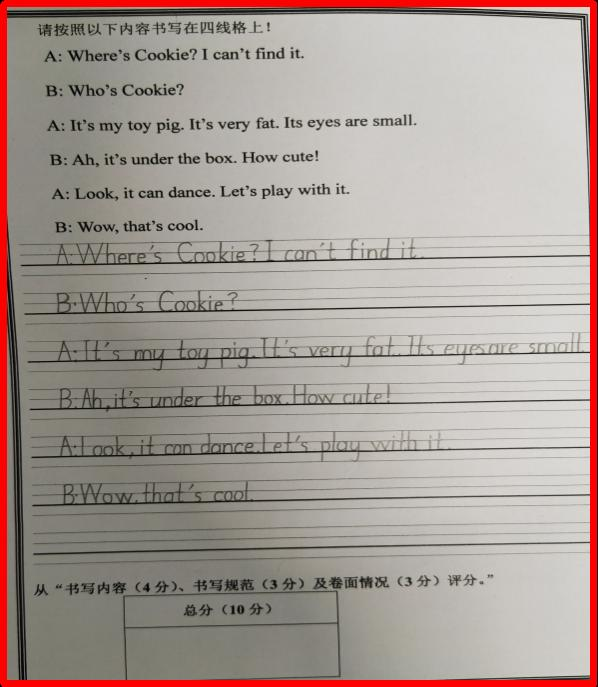 请按照以下内容书写在四线格上！
A: Where's Cookie? I can't find it.
B: Who's Cookie?
A: It's my toy pig. It's very fat. Its eyes are small.
B: Ah, it's under the box. How cute!
A: Look, it can dance. Let's play with it.
B: Wow, that's cool.
A:Where's Cookie? I can't find it.
B:Who's Cookie?
A:It's my toy pig.It's very fat. Its eyes are small.
B:Ah,it's under the box.How cute!
A:Look,it can dance.Let's play with it.
B:Wow,that's cool.
从“书写内容（4分）、书写规范（3分）及卷面情况（3分）评分。”
总分（10分）